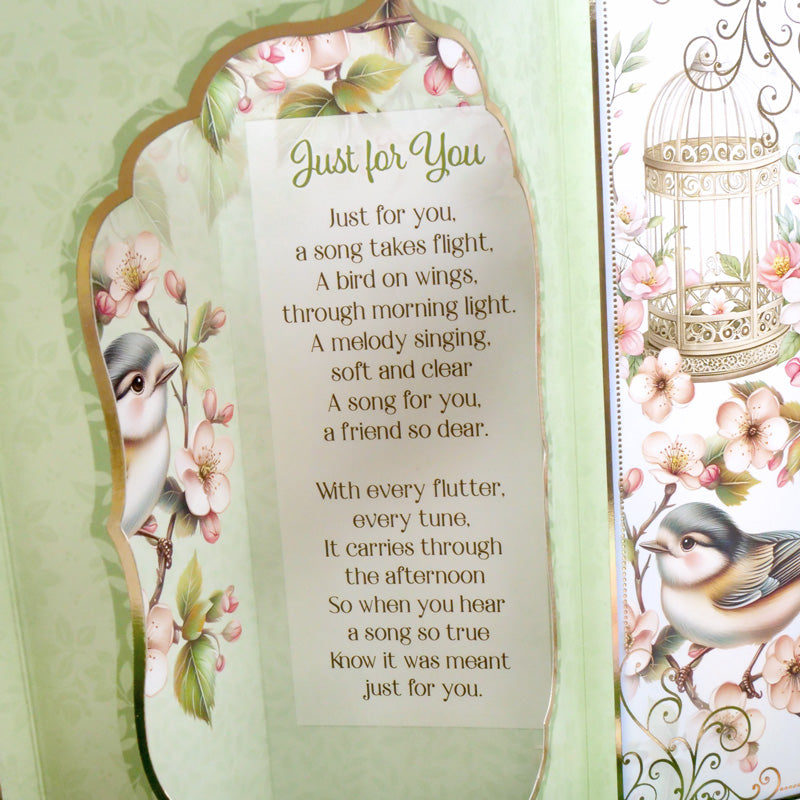 Just for You
Just for you,
a song takes flight,
A bird on wings,
through morning light.
A melody singing,
soft and clear
A song for you,
a friend so dear.
With every flutter,
every tune,
It carries through
the afternoon
So when you hear
a song so true
Know it was meant
just for you.